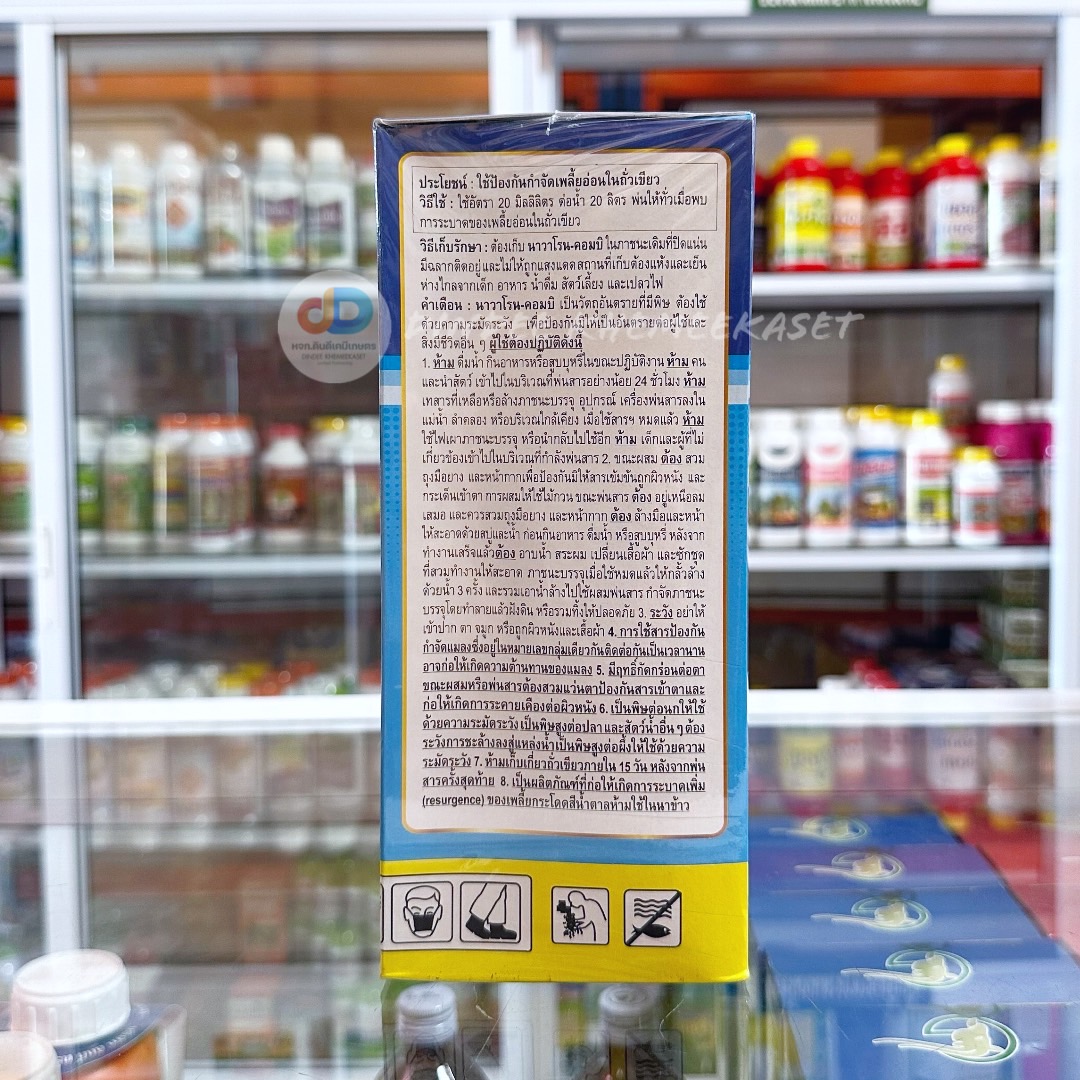 ประโยชน์ : ใช้ป้องกันกำจัดเพลี้ยอ่อนในถั่วเขียว
วิธีใช้ : ใช้อัตรา 20 มิลลิลิตร ต่อน้ำ 20 ลิตร พ่นให้ทั่วเมื่อพบ
การระบาดของเพลี้ยอ่อนในถั่วเขียว
วิธีเก็บรักษา : ต้องเก็บ นาวาโรน-คอมบิ ในภาชนะเดิมที่ปิดแน่น
มีฉลากติดอยู่ และไม่ให้ถูกแสงแดดสถานที่เก็บต้องแห้งและเย็น
ห่างไกลจากเด็ก อาหาร น้ำดื่ม สัตว์เลี้ยง และเปลวไฟ
คำเตือน : นาวาโรน-คอมบิ เป็นวัตถุอันตรายที่มีพิษ ต้องใช้
ด้วยความระมัดระวัง เพื่อป้องกันมิให้เป็นอันตรายต่อผู้ใช้และ
สิ่งมีชีวิตอื่น ๆ ผู้ใช้ต้องปฏิบัติดังนี้
1. ห้าม ดื่มน้ำ กินอาหารหรือสูบบุหรี่ในขณะปฏิบัติงาน ห้าม คน
และนำสัตว์ เข้าไปในบริเวณที่พ่นสารอย่างน้อย 24 ชั่วโมง ห้าม
เทสารที่เหลือหรือล้างภาชนะบรรจุ อุปกรณ์ เครื่องพ่นสารลงใน
แม่น้ำ ลำคลอง หรือบริเวณใกล้เคียง เมื่อใช้สารฯ หมดแล้ว ห้าม
ใช้ไฟเผาภาชนะบรรจุ หรือนำกลับไปใช้อีก ห้าม เด็กและผู้ที่ไม่
เกี่ยวข้องเข้าไปในบริเวณที่กำลังพ่นสาร 2. ขณะผสม ต้อง สวม
ถุงมือยาง และหน้ากากเพื่อป้องกันมิให้สารเข้มข้นถูกผิวหนัง และ
กระเด็นเข้าตา การผสมให้ใช้ไม้กวน ขณะพ่นสาร ต้อง อยู่เหนือลม
เสมอ และควรสวมถุงมือยาง และหน้ากาก ต้อง ล้างมือและหน้า
ให้สะอาดด้วยสบู่และน้ำ ก่อนกินอาหาร ดื่มน้ำ หรือสูบบุหรี่ หลังจาก
ทำงานเสร็จแล้วต้อง อาบน้ำ สระผม เปลี่ยนเสื้อผ้า และซักชุด
ที่สวมทำงานให้สะอาด ภาชนะบรรจุเมื่อใช้หมดแล้วให้กลั้วล้าง
ด้วยน้ำ 3 ครั้ง และรวมเอาน้ำล้างไปใช้ผสมพ่นสาร กำจัดภาชนะ
บรรจุโดยทำลายแล้วฝังดิน หรือรวมทิ้งให้ปลอดภัย 3. ระวัง อย่าให้
เข้าปาก ตา จมูก หรือถูกผิวหนังและเสื้อผ้า 4. การใช้สารป้องกัน
กำจัดแมลงซึ่งอยู่ในหมายเลขกลุ่มเดียวกันติดต่อกันเป็นเวลานาน
อาจก่อให้เกิดความต้านทานของแมลง 5. มีฤทธิ์กัดกร่อนต่อตา
ขณะผสมหรือพ่นสารต้องสวมแว่นตาป้องกันสารเข้าตาและ
ก่อให้เกิดการระคายเคืองต่อผิวหนัง 6. เป็นพิษต่อนกให้ใช้
ด้วยความระมัดระวัง เป็นพิษสูงต่อปลา และสัตว์น้ำอื่น ๆ ต้อง
ระวังการชะล้างลงสู่แหล่งน้ำเป็นพิษสูงต่อผึ้งให้ใช้ด้วยความ
ระมัดระวัง 7. ห้ามเก็บเกี่ยวถั่วเขียวภายใน 15 วัน หลังจากพ่น
สารครั้งสุดท้าย 8. เป็นผลิตภัณฑ์ที่ก่อให้เกิดการระบาดเพิ่ม
(resurgence) ของเพลี้ยกระโดดสีน้ำตาลห้ามใช้ในนาข้าว
หจก.ดินดีเคมีเกษตร
DINDEE KHEMEEKASET